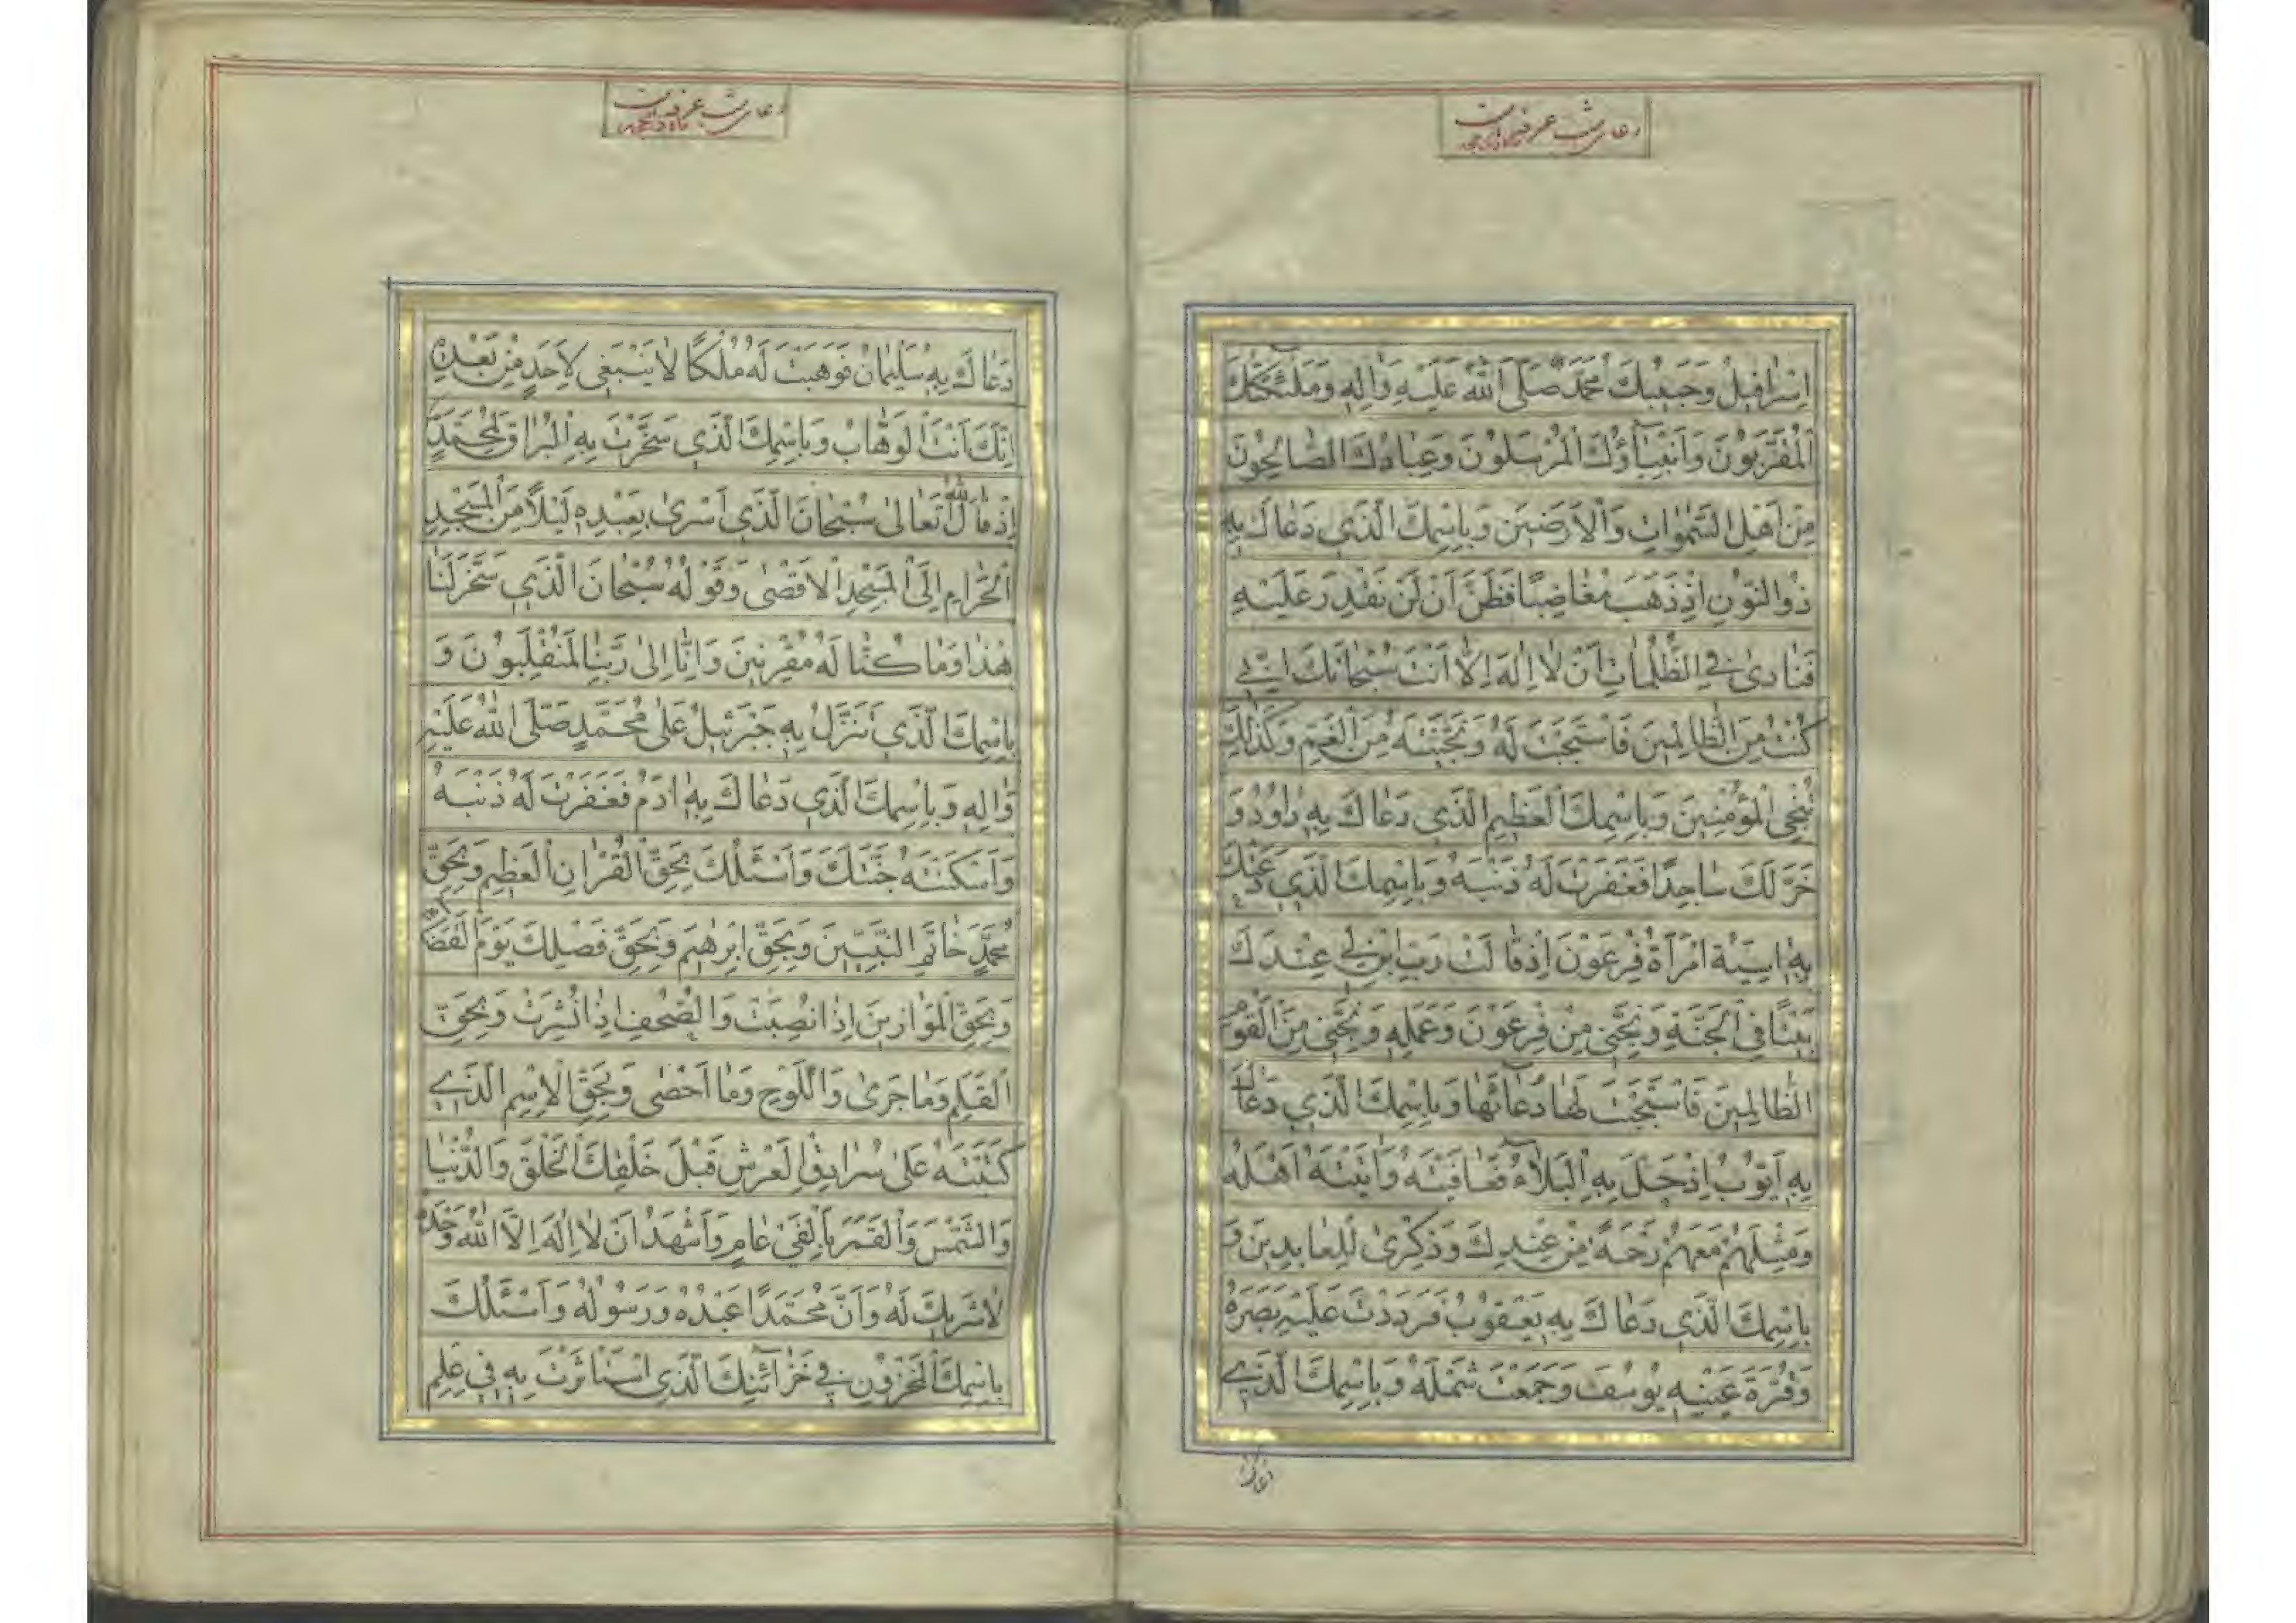 دعای شب عرفه
اِسْرافیلُ وَحَبیبُكَ مُحَمَّدٌ صَلَّی اللهُ عَلَیْهِ وَاٰلِهِ وَمَلٰئِکَتُكَ
الْمُقَرَّبُونَ وَاَنْبِیآؤُكَ الْمُرْسَلُونَ وَعِبادُكَ الصّالِحُونَ
مِنْ اَهْلِ السَّمٰواتِ وَالْاَرَضینَ وَبِاسْمِكَ الَّذی دَعاكَ بِهِ
ذُوالنُّونِ اِذْ ذَهَبَ مُغاضِبًا فَظَنَّ اَنْ لَنْ نَقْدِرَ عَلَیْهِ
فَنادیٰ فِی الظُّلُماتِ اَنْ لا اِلٰهَ اِلّا اَنْتَ سُبْحانَكَ اِنّی
كُنْتُ مِنَ الظّالِمینَ فَاسْتَجَبْتَ لَهُ وَنَجَّیْتَهُ مِنَ الْغَمِّ وَكَذٰلِكَ
نُنْجِی الْمُؤْمِنینَ وَبِاسْمِكَ الْعَظیمِ الَّذی دَعاكَ بِهِ داوُدُ وَ
خَرَّ لَكَ ساجِدًا فَغَفَرْتَ لَهُ ذَنْبَهُ وَبِاسْمِكَ الَّذی دَعَتْكَ
بِهِ اٰسِیَةُ امْرَاَةُ فِرْعَوْنَ اِذْ قالَتْ رَبِّ ابْنِ لی عِنْدَكَ
بَیْتًا فِی الْجَنَّةِ وَنَجِّنی مِنْ فِرْعَوْنَ وَعَمَلِهِ وَنَجِّنی مِنَ الْقَوْمِ
الظّالِمینَ فَاسْتَجَبْتَ لَها دُعآئَها وَبِاسْمِكَ الَّذی دَعاكَ
بِهِ اَیُّوبُ اِذْ حَلَّ بِهِ الْبَلآءُ فَعافَیْتَهُ وَاٰتَیْتَهُ اَهْلَهُ
وَمِثْلَهُمْ مَعَهُمْ رَحْمَةً مِنْ عِنْدِكَ وَذِكْریٰ لِلْعابِدینَ وَ
بِاسْمِكَ الَّذی دَعاكَ بِهِ یَعْقُوبُ فَرَدَدْتَ عَلَیْهِ بَصَرَهُ
وَقُرَّةَ عَیْنِهِ یُوسُفَ وَجَمَعْتَ شَمْلَهُ وَبِاسْمِكَ الَّذی
دعاك
دعای شب عرفه
دَعاكَ بِهِ سُلَیْمانُ فَوَهَبْتَ لَهُ مُلْكًا لا یَنْبَغی لِاَحَدٍ مِنْ بَعْدِهِ
اِنَّكَ اَنْتَ الْوَهّابُ وَبِاسْمِكَ الَّذی سَخَّرْتَ بِهِ الْبُراقَ لِمُحَمَّدٍ
اِذْ قالَ اللهُ تَعالیٰ سُبْحانَ الَّذی اَسْریٰ بِعَبْدِهِ لَیْلًا مِنَ الْمَسْجِدِ
الْحَرامِ اِلَی الْمَسْجِدِ الْاَقْصیٰ وَقَوْلُهُ سُبْحانَ الَّذی سَخَّرَ لَنا
هٰذا وَما كُنّا لَهُ مُقْرِنینَ وَاِنّا اِلیٰ رَبِّنا لَمُنْقَلِبُونَ وَ
بِاسْمِكَ الَّذی تَنَزَّلَ بِهِ جَبْرَئیلُ عَلیٰ مُحَمَّدٍ صَلَّی اللهُ عَلَیْهِ
وَاٰلِهِ وَبِاسْمِكَ الَّذی دَعاكَ بِهِ اٰدَمُ فَغَفَرْتَ لَهُ ذَنْبَهُ
وَاَسْكَنْتَهُ جَنَّتَكَ وَاَسْئَلُكَ بِحَقِّ الْقُرْاٰنِ الْعَظیمِ وَبِحَقِّ
مُحَمَّدٍ خاتَمِ النَّبِیّینَ وَبِحَقِّ اِبْرٰهیمَ وَبِحَقِّ فَصْلِكَ یَوْمَ الْقَضآءِ
وَبِحَقِّ الْمَوازینَ اِذا نُصِبَتْ وَالصُّحُفِ اِذا نُشِرَتْ وَبِحَقِّ
الْقَلَمِ وَما جَریٰ وَاللَّوْحِ وَما اَحْصیٰ وَبِحَقِّ الْاِسْمِ الَّذی
كَتَبْتَهُ عَلیٰ سُرادِقِ الْعَرْشِ قَبْلَ خَلْقِكَ الْخَلْقَ وَالدُّنْیا
وَالشَّمْسَ وَالْقَمَرَ بِاَلْفَیْ عامٍ وَاَشْهَدُ اَنْ لا اِلٰهَ اِلَّا اللهُ وَحْدَهُ
لا شَریكَ لَهُ وَاَنَّ مُحَمَّدًا عَبْدُهُ وَرَسُولُهُ وَاَسْئَلُكَ
بِاسْمِكَ الْمَخْزُونِ فی خَزآئِنِكَ الَّذِی اسْتَاْثَرْتَ بِهِ فی عِلْمِ